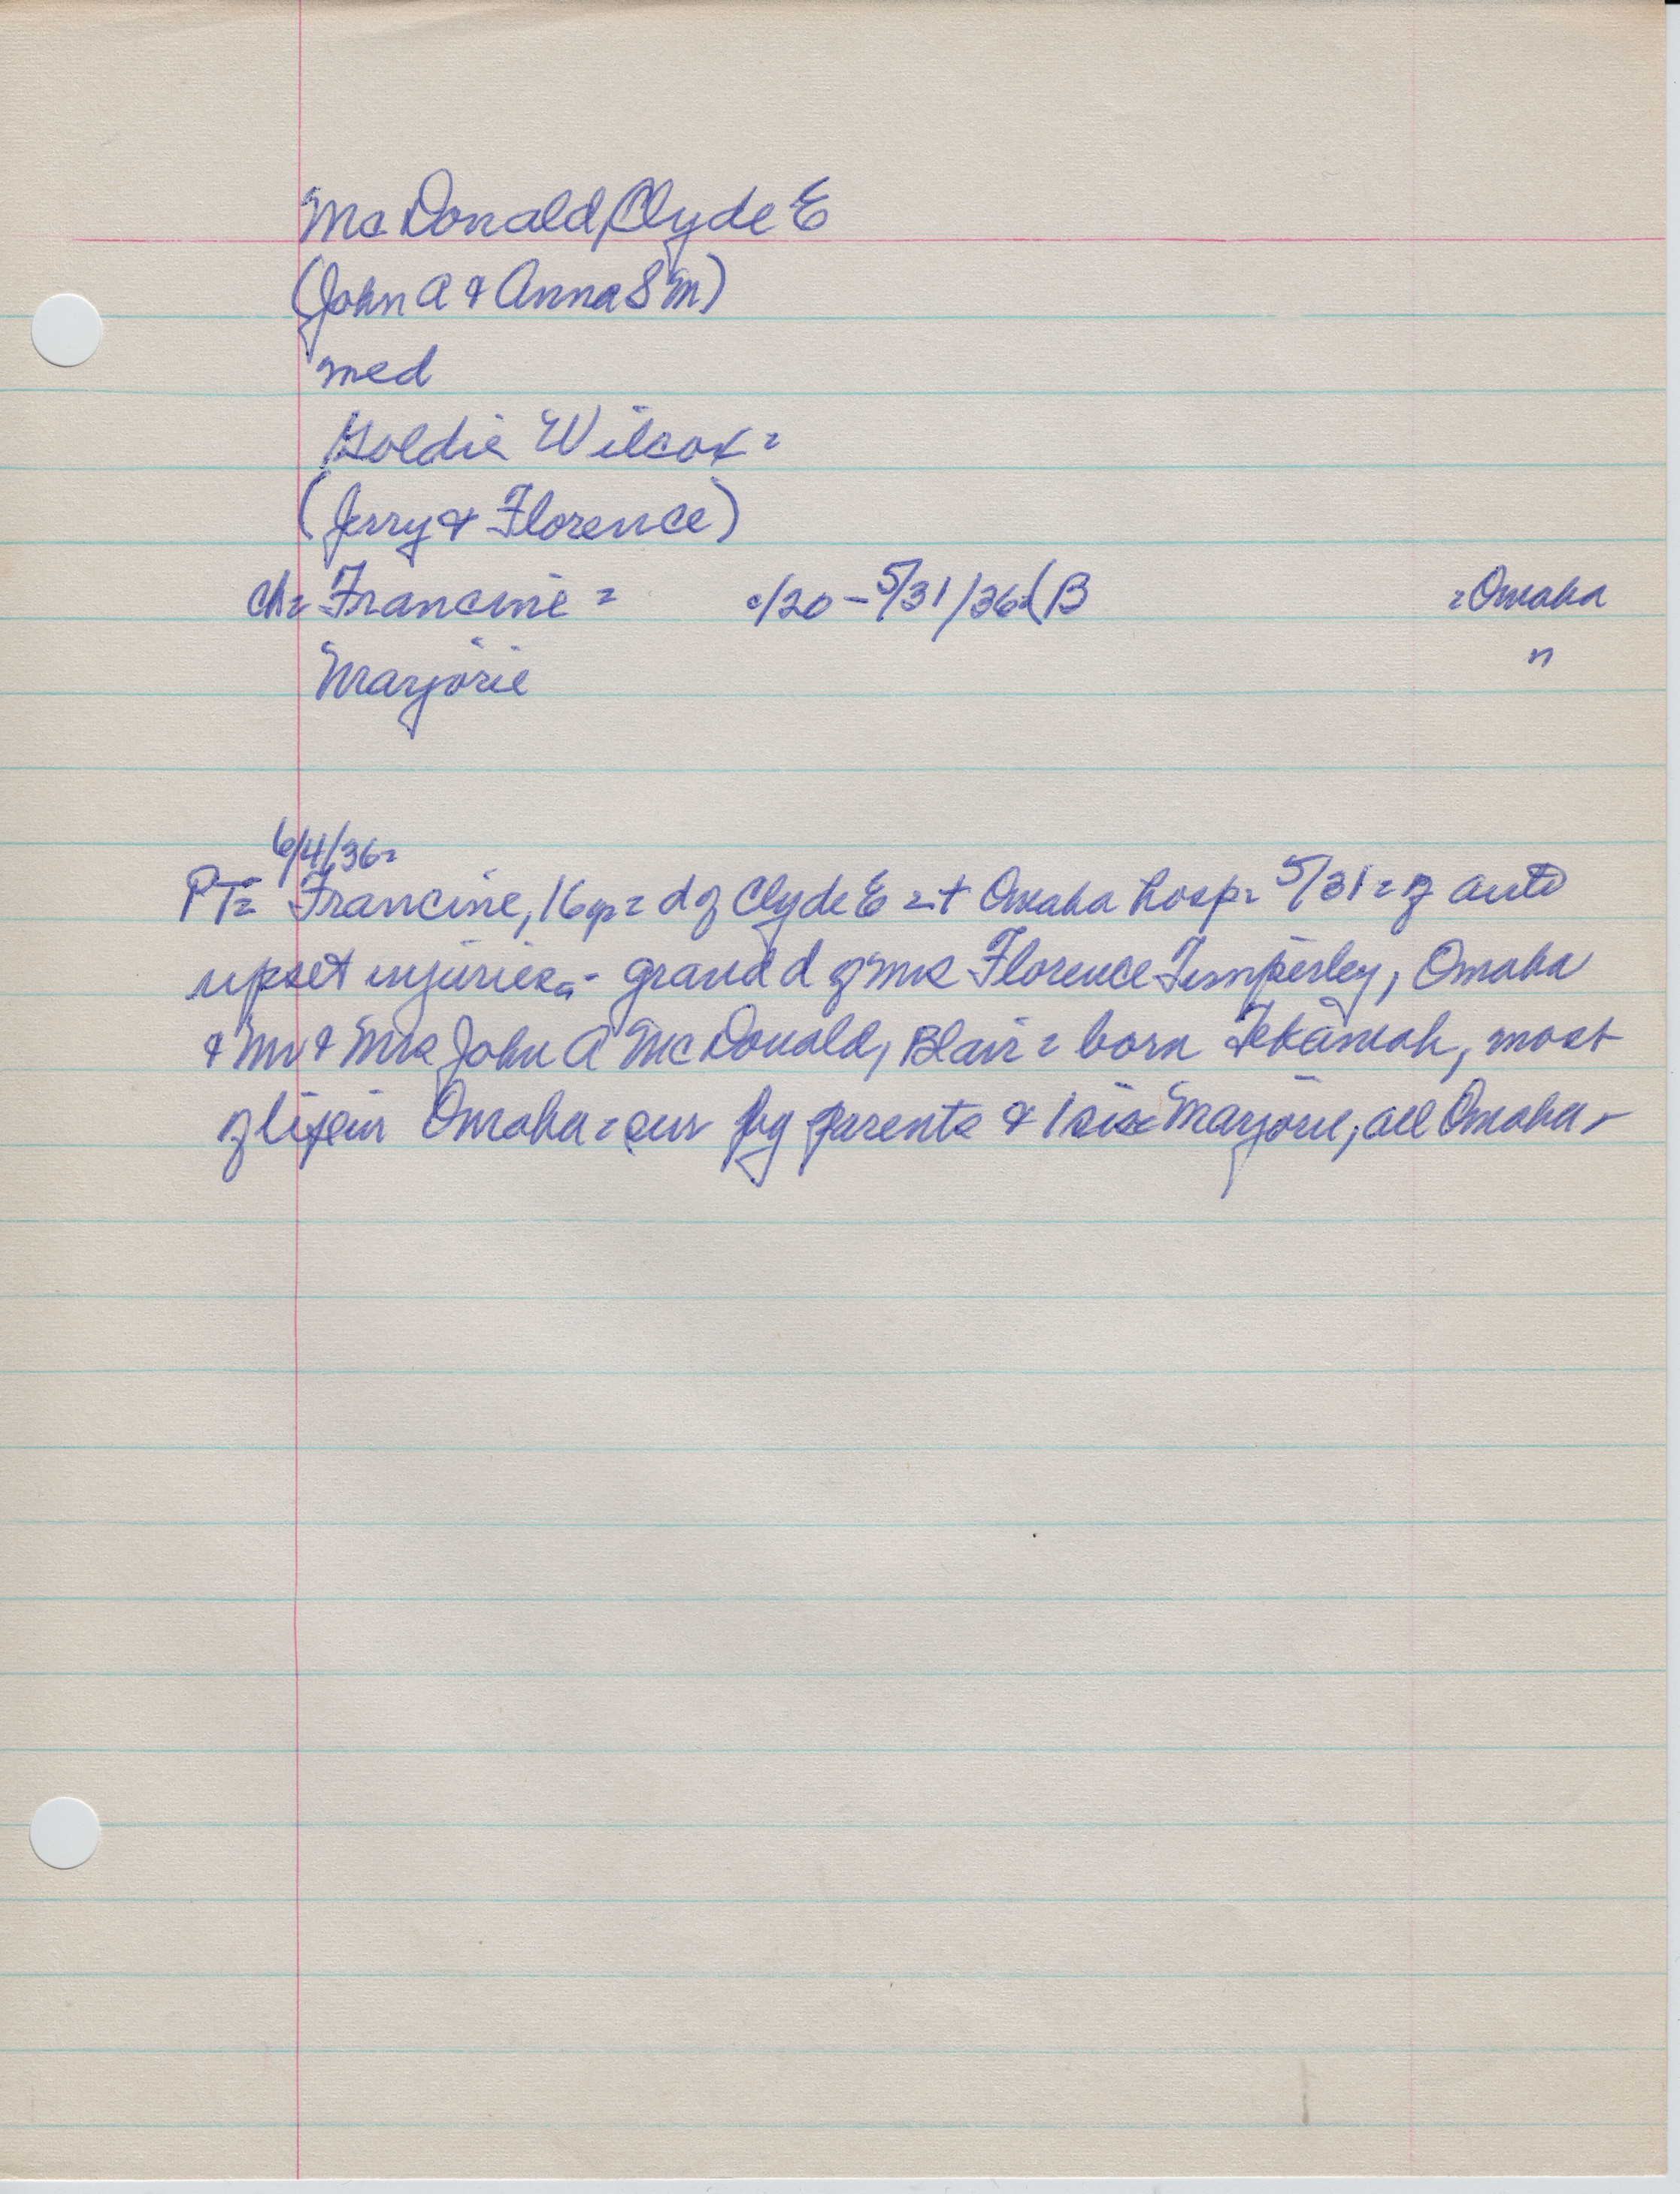 McDonald, Clyde E
(John A & Anna S M)
med
Goldie Wilcox =
(Jerry & Florence)
ch= Francine = °/20 – 5/31/36 (B = Omaha
Marjorie "
6/4/36=
PT= Francine, 16 yr = d of Clyde E = + Omaha hosp = 5/31 = of auto
upset injuries = - grand d of Mrs Florence Timperley, Omaha
& Mr & Mrs John A McDonald, Blair = born Tekamah, most
of life in Omaha = sur by parents & 1 sis Marjorie, all Omaha -